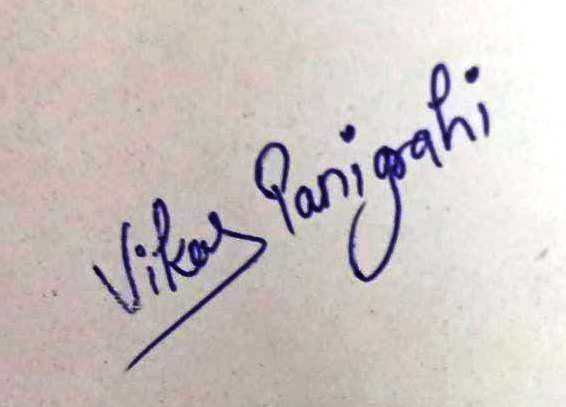 Vikas Panigrahi